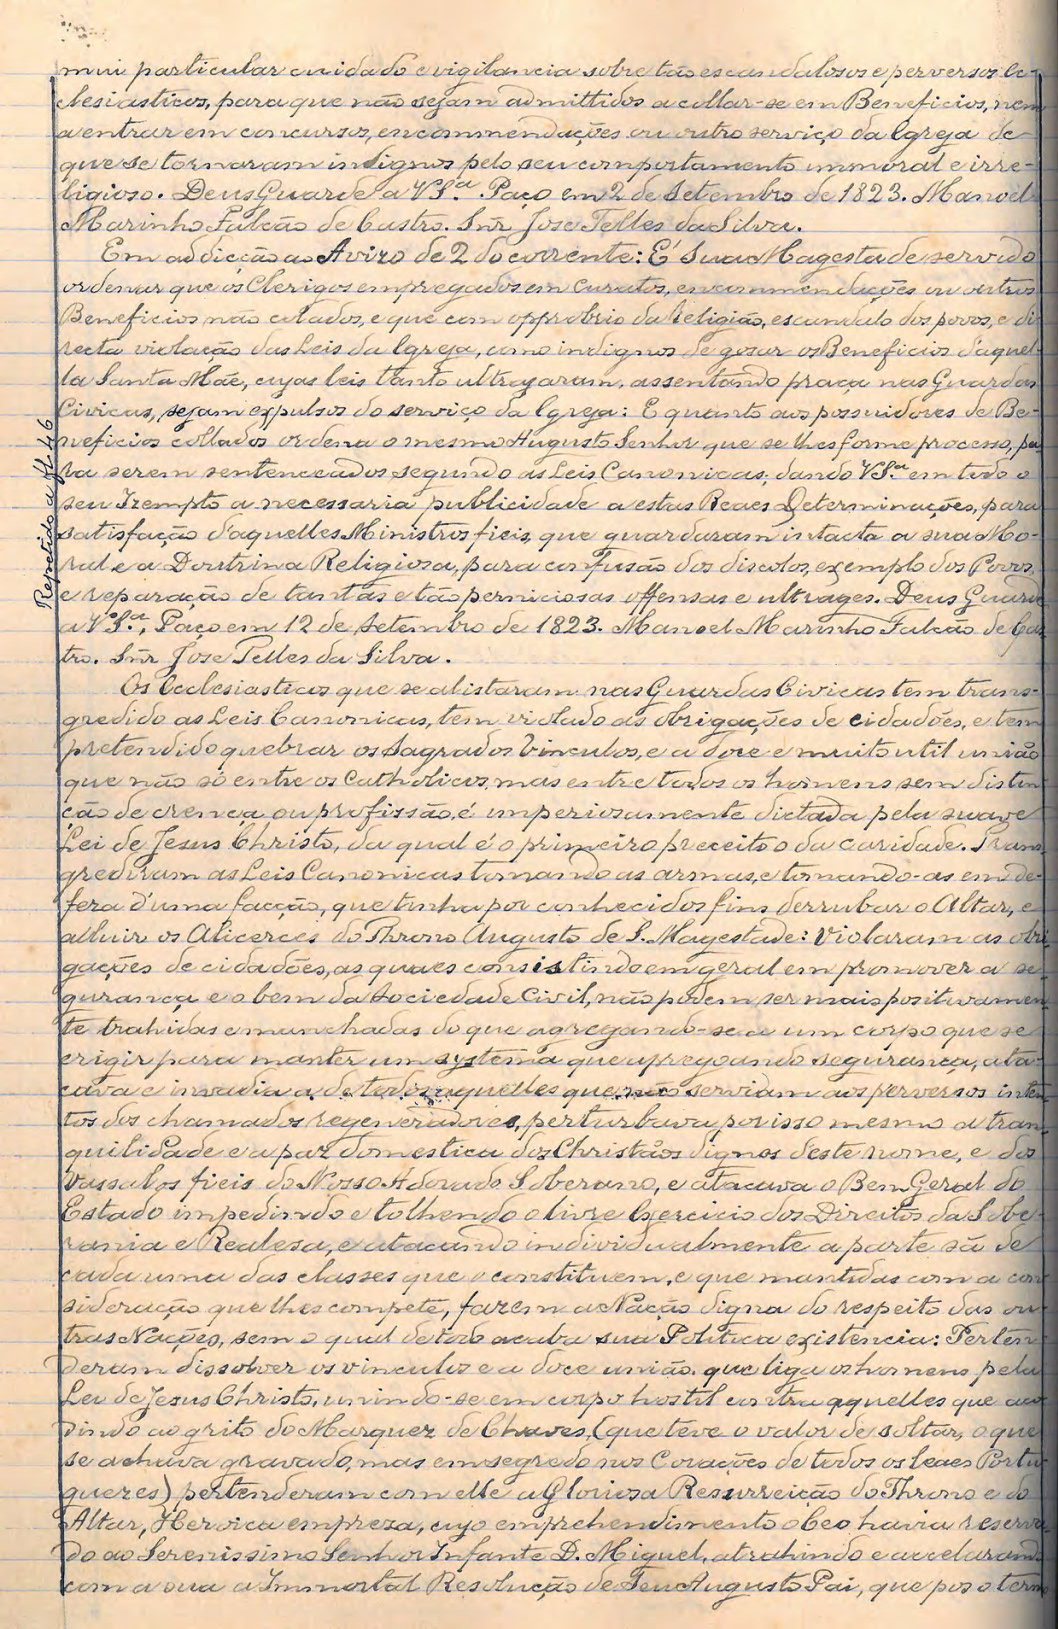 mui particular cuidado e vigilancia sobre tão escandalosos e perversos Ec-
clesiasticos, para que não sejam admittidos a collar-se em Beneficios, nem
a entrar em concursos, encommendações ou outro serviço da Igreja de
que se tornaram indignos pelo seu comportamento immoral e irre-
ligioso. Deus Guarde a VSª. Paço em 2 de Setembro de 1823. Manoel
Marinho Falcão de Castro. Snr. Jose Telles da Silva.
Em addicção ao Avizo de 2 do corrente: É Sua Magestade servido
ordenar que os Clerigos empregados em curatos, encommendações ou outros
Beneficios não colados, e que com opprobrio da religião, escandalo dos povos, e di-
recta violação das Leis da Igreja, como indignos de gosar os Beneficios d'aquel-
la Santa Mãe, cujas leis tanto ultrajaram, assentando praça nas Guardas
Civicas, sejam expulsos do serviço da Igreja: E quanto aos possuidores de Be-
neficios collados ordena o mesmo Augusto Senhor que se lhes forme processo, pa-
ra serem sentenceados segundo as Leis Canonicas, dando VSª. em todo o
seu Izempto a necessaria publicidade a estas Reaes Determinações, para
satisfação d'aquelles Ministros fieis, que guardaram intacta a sua Mo-
ral e a Doutrina Religiosa, para confusão dos discolos, exemplo dos Povos,
e reparação de tantas e tão perniciosas offensas e ultrages. Deus Guarde
a VSª, Paço em 12 de Setembro de 1823. Manoel Marinho Falcão de Cas-
tro. Snr Jose Telles da Silva.
Repetido a fl. 46
Os Ecclesiasticos que se alistaram nas Guardas Civicas tem trans-
gredido as Leis Canonicas, tem violado as obrigações de cidadões, e tem
pretendido quebrar os Sagrados Vinculos, e a doce e muito util união
que não só entre os Catholicos, mas entre todos os homens sem distin-
ção de crença ou profissão, é imperiosamente dictada pela suave
Lei de Jesus Christo, da qual é o primeiro preceito o da caridade. Trans-
grediram as Leis Canonicas tomando as armas, e tomando-as em de-
feza d'uma facção, que tinha por conhecidos fins derrubar o Altar, e
alluir os Alicerces do Throno Augusto de S. Magestade: Violaram as obri-
gações de cidadões, as quaes consistindo em geral em promover a se-
gurança e o bem da Sociedade Civil, não podem ser mais positivamen-
te trahidas e manchadas do que agregando-se a um corpo que se
erigir para manter um systema que apregoando segurança, ata-
cava e invadia a de todos aquelles que não serviam aos perversos inten-
tos dos chamados regeneradores, perturbava por isso mesmo a tran-
quilidade e a paz domestica dos Christãos dignos deste nome, e dos
Vassalos fieis do Nosso Adorado Soberano, e atacava o Bem Geral do
Estado impedindo e tolhendo o livre Exercicio dos Direitos da Sobe-
rania e Realesa, e atacando individualmente a parte sã de
cada uma das classes que o constituem, e que mantidas com a con-
sideração que lhes compete, fazem a Nação digna do respeito das ou-
tras Nações, sem o qual de todo acaba sua Politica existencia: Perten-
deram dissolver os vinculos e a doce união, que liga os homens pela
Lei de Jesus Christo, unindo-se em corpo hostil contra aquelles que acu-
dindo ao grito do Marquez de Chaves, (que teve o valor de soltar, o que
se achava gravado, mas em segredo nos Corações de todos os leaes Portu-
guezes) pertenderam com elle a Gloriosa Resurreição do Throno e do
Altar, Heroica empreza, cujo emprehendimento o Ceo havia reserva-
do ao Serenissimo Senhor Infante D. Miguel, atrahindo e accelarando
com a sua a Immortal Resolução de Seu Augusto Pai, que pos o termo